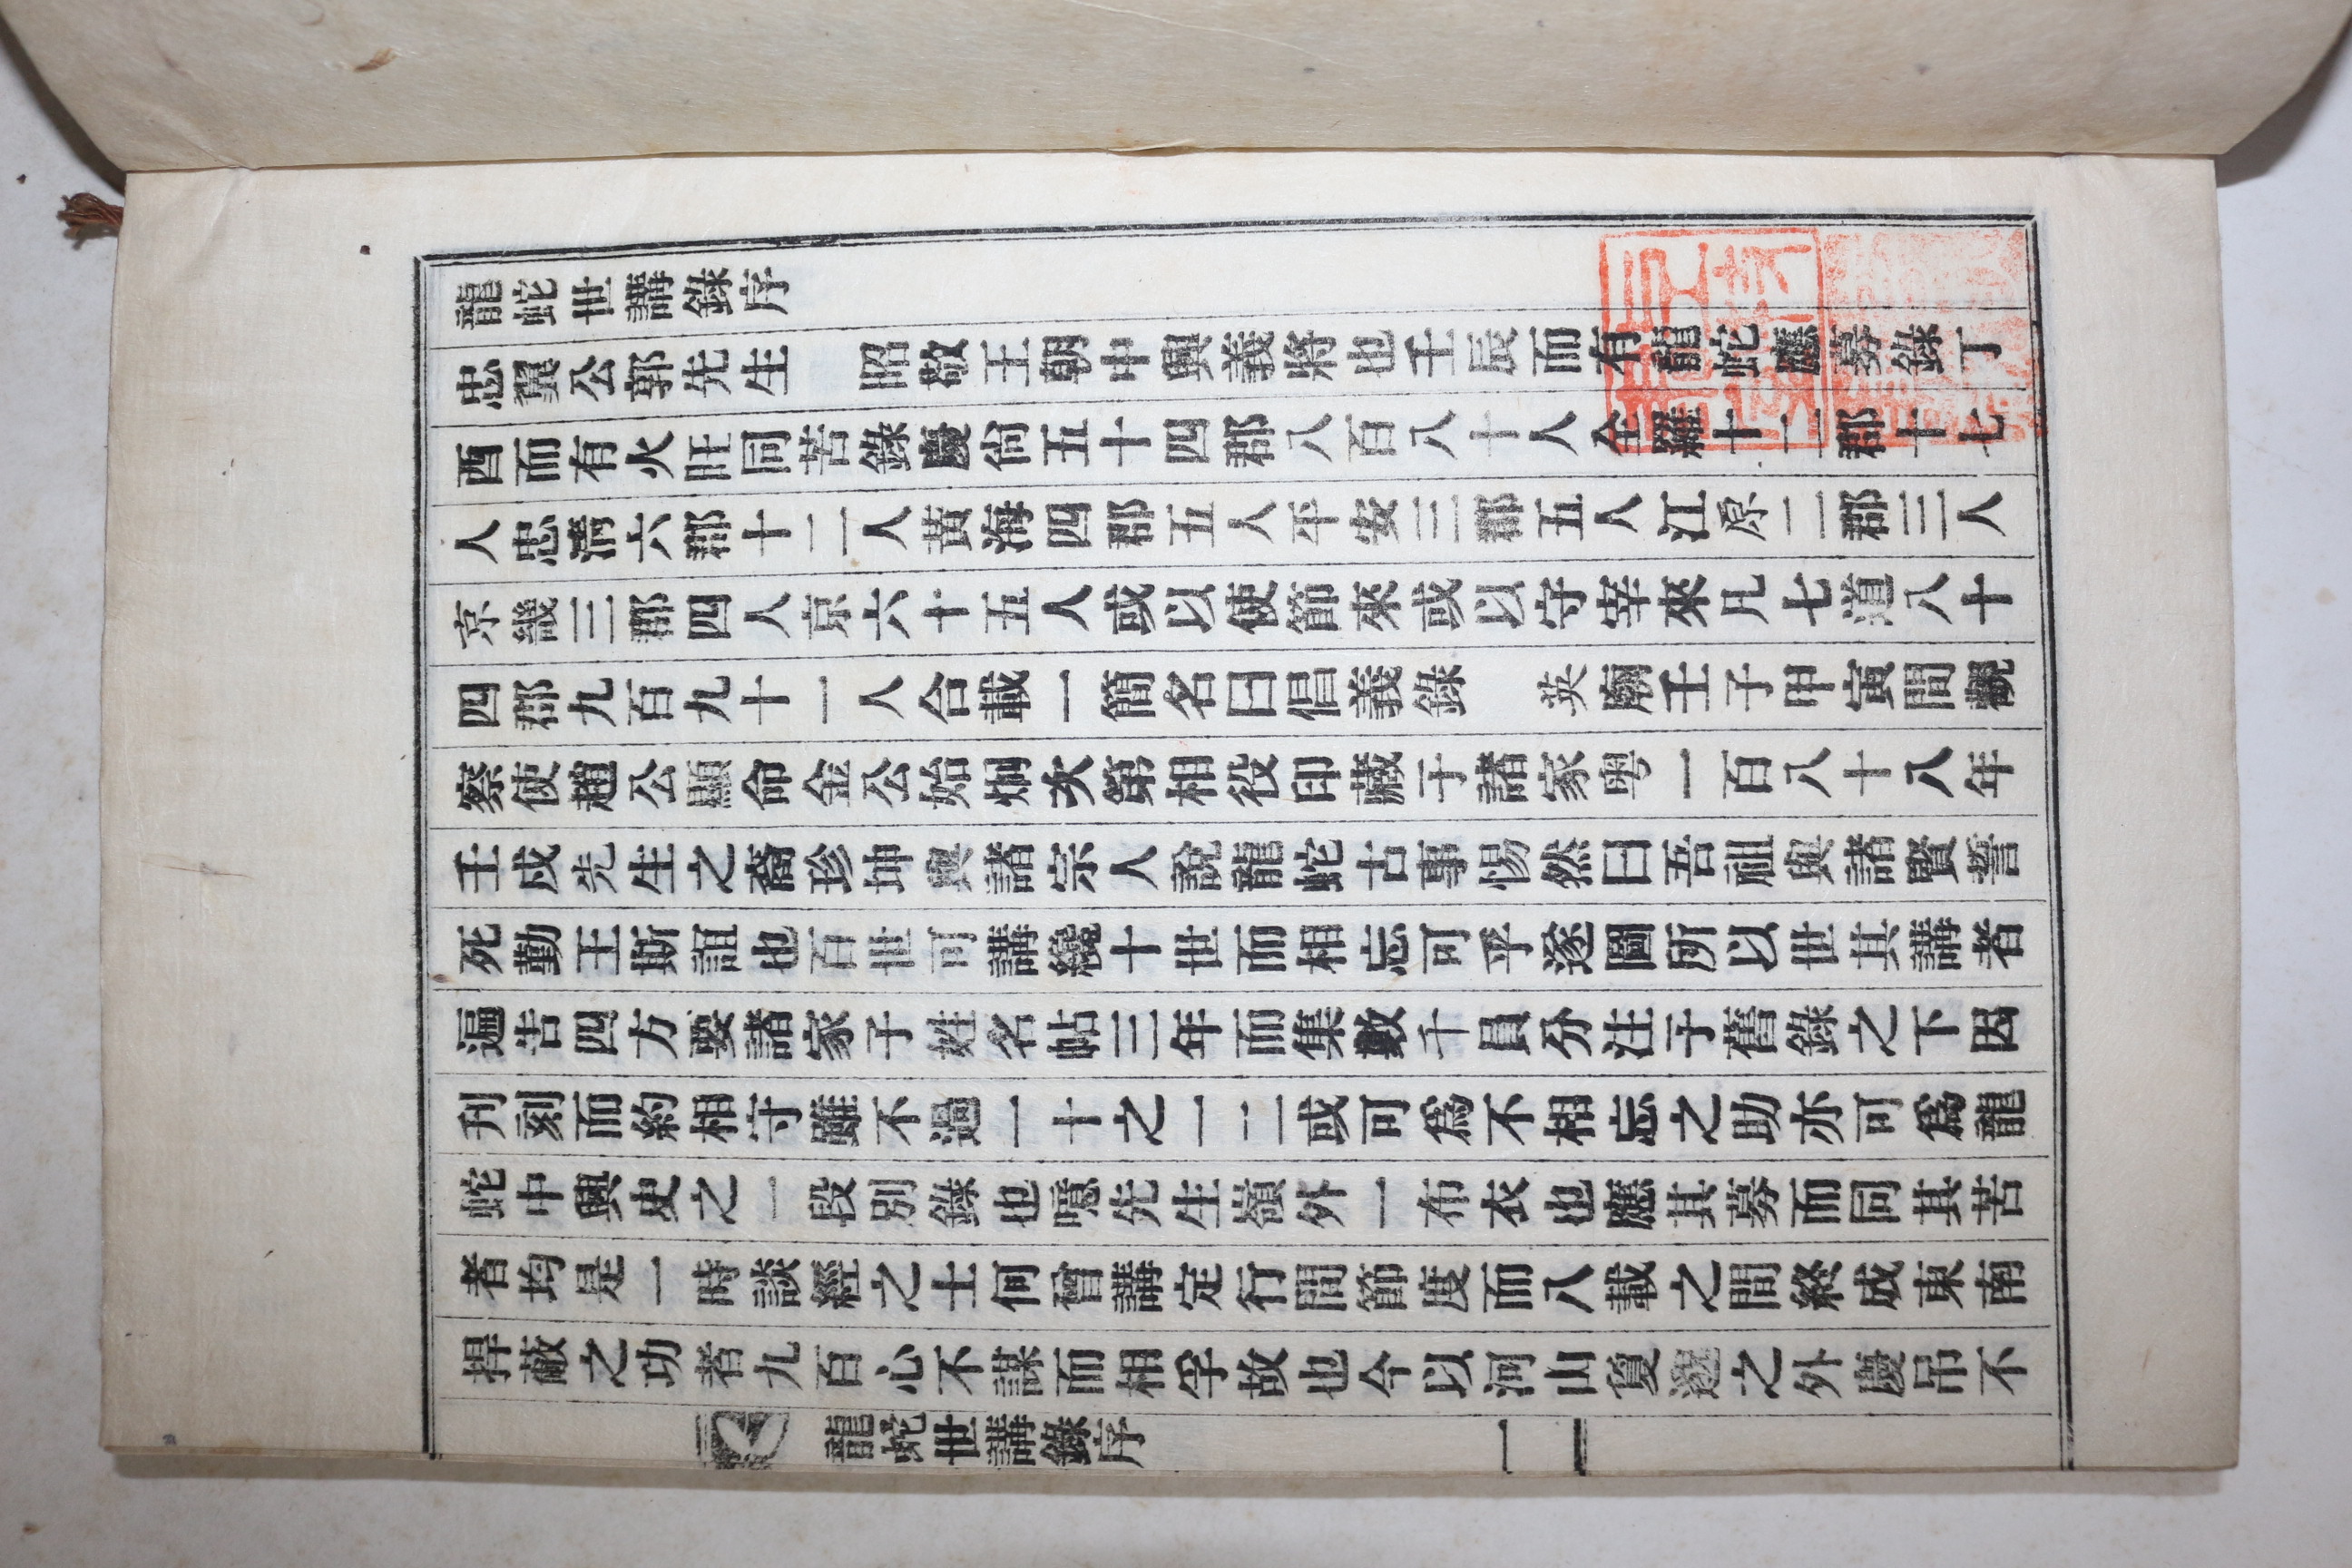 龍蛇世講錄序
忠翼公郭先生　昭敬王朝中興義將也壬辰而有龍蛇應募錄丁
酉而有火旺同苦錄慶尙五十四郡八百八十人全羅十二郡十七
人忠淸六郡十二人黃海四郡五人平安三郡五人江原二郡三人
京畿三郡四人京六十五人或以使節來或以守宰來凡七道八十
四郡九百九十一人合載一簡名曰倡義錄　英廟壬子甲寅間觀
察使趙公顯命金公始炯次第相役印藏于諸家粤一百八十八年
壬戍先生之裔珍坤與諸宗人說龍蛇古事惕然曰吾祖與諸賢誓
死勤王斯誼也百世可講纔十世而相忘可乎遂圖所以世其講者
遍告四方要諸家子姓名帖三年而集數千員分注于舊錄之下因
刋刻而約相守雖不過一十之一二或可爲不相忘之助亦可爲龍
蛇中興史之一段別錄也噫先生嶺外一布衣也應其募而同其苦
者均是一時談經之士何曾講定行間節度而八載之間終成東南
捍蔽之功者九百心不謀而相孚故也今以河山夐邈之外慶吊不
龍蛇世講錄序　一